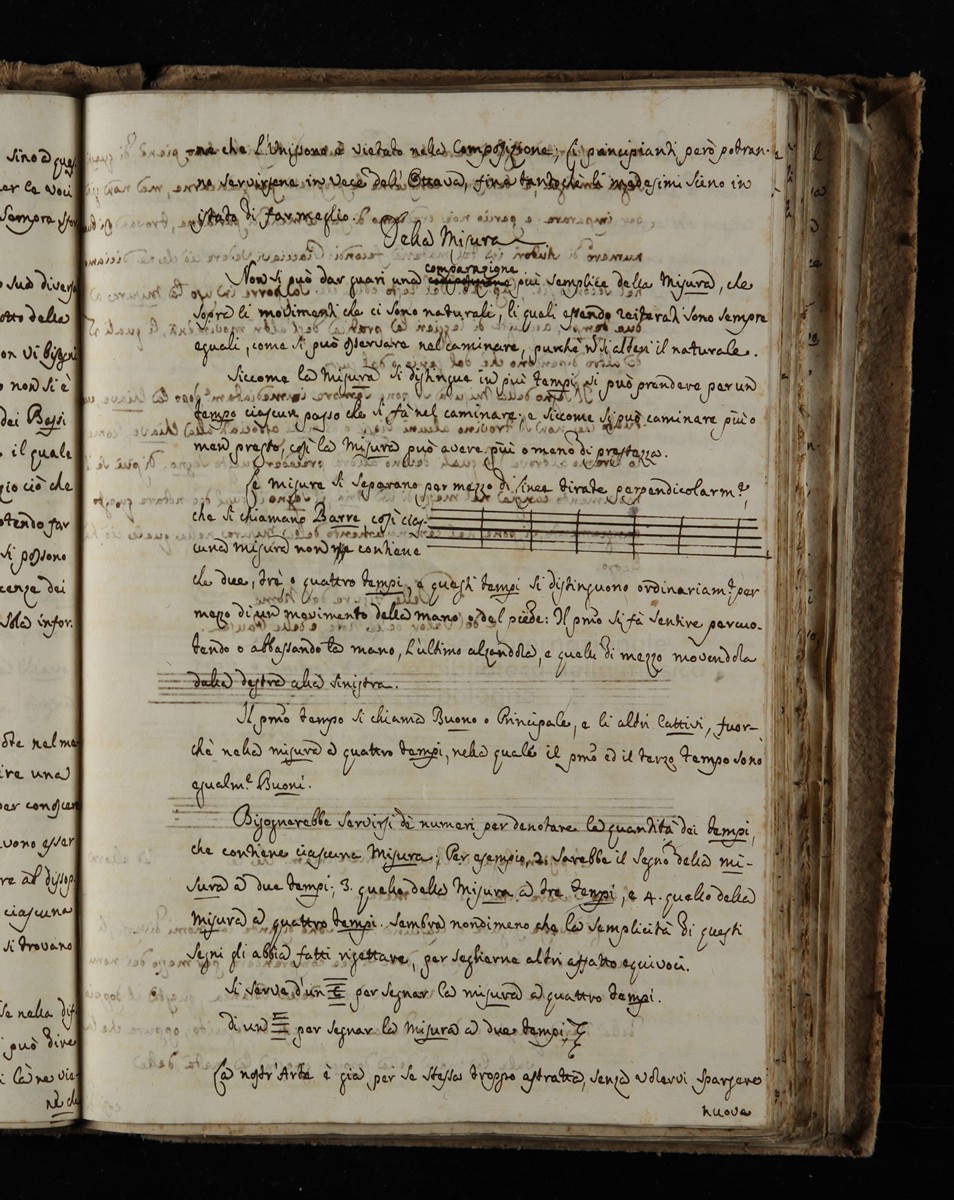 sino a ques
er le voci
Sempre sfor
sud diverse
otto della
on vi bisogni
non si è
dei Bassi
il quale
gio ciò che
otendo far
si possono
cenza dei
Sola infor.
dote nel me
ire una
per conoscere
vono esser
re al dissop
ciascuna
si trovano
se nella dif
può dire
i la ne vie
nè che
nè che L'Unissono è vietato nella Composizione; li principianti però potran-
no servirsene in vece dell'Ottava, fino tanto che li medesimi sieno in
istato di far meglio.
Della Misura
Non si può dar guari una comparazione più semplice della Misura, che
sopra li movimenti che ci sono naturali, li quali essendo reiterati sono sempre
eguali, come si può osservare nel caminare, purchè n si alteri il naturale.
Siccome la Misura si distingue in più tempi, si può prendere per un
tempo ciascun passo che si fà nel caminare; e siccome si può caminare più o
men presto, così la Misura può avere più o meno di prestezza.
Le Misure si separano per mezzo di linee tirate perpendicolarm.te
che si chiamano Barre così cias-
cuna misura non contiene
che due, trè o quattro tempi, e questi tempi si distinguono ordinariam.e per
mezzo di un movimento della mano o del piede: Il pmo si fà sentire percuo-
tendo o abbassando la mano, l'ultimo alzandola, e quelli di mezzo movendola
dalla destra alla sinistra.
Il pmo tempo si chiama Buono o Principale, e li altri Cattivi, fuor-
chè nella misura a quattro tempi, nella quale il pmo ed il terzo tempo sono
egualm.e Buoni.
Bisognerebbe servirsi dè numeri per denotare la quantità dei tempi,
che contiene ciascuna Misura; Per esempio, 2. sarebbe il segno della mi-
sura a due tempi; 3. quello della Misura a tre tempi, e 4. quello della
Misura a quattro tempi. Sembra nondimeno che la semplicità di questi
segni gli abbia fatti rigettare, per sceglierne altri affatto equivoci.
Si serve d'un C per segnar la misura a quattro tempi.
di un per segnar la Misura a due tempi
La nostr'Arte è già per se stessa troppo astratta, senza volervi spargere
nuove